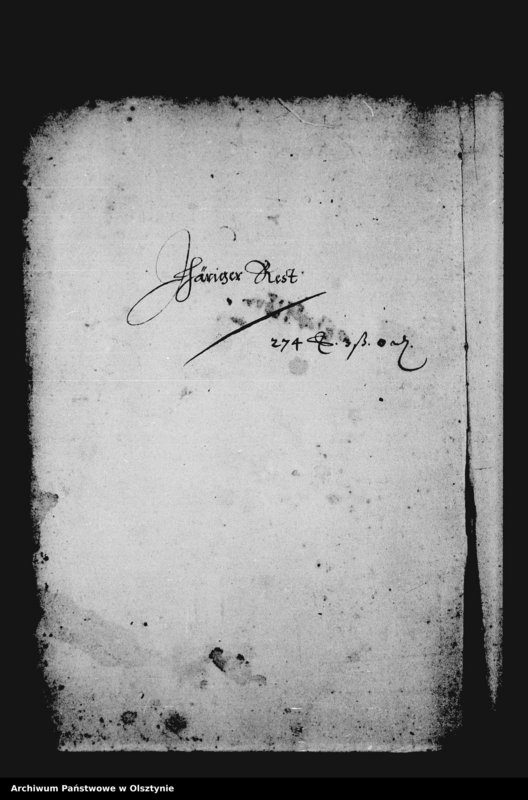 Jhäriger Rest
274 ₰. 3 ß. 0 ₰.
Archiwum Państwowe w Olsztynie